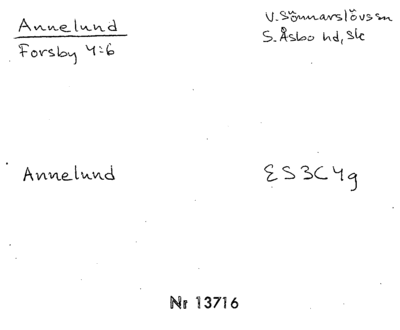 Annelund
Forsby 4:6
V. Sönnarslövs sn
S. Åsbo hd, Sk
Annelund
ES3C4g
Nr 13716